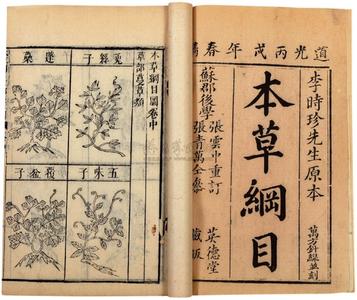 道光丙戌年春
李時珍先生原本
萬方針線並刻
本草綱目
蘇郡後學
張雲中重訂
張青萬仝參
英德堂
藏版
本草綱目圖卷中
草部蔓草類
菟絲子
蓬蘽
五味子
覆盆子